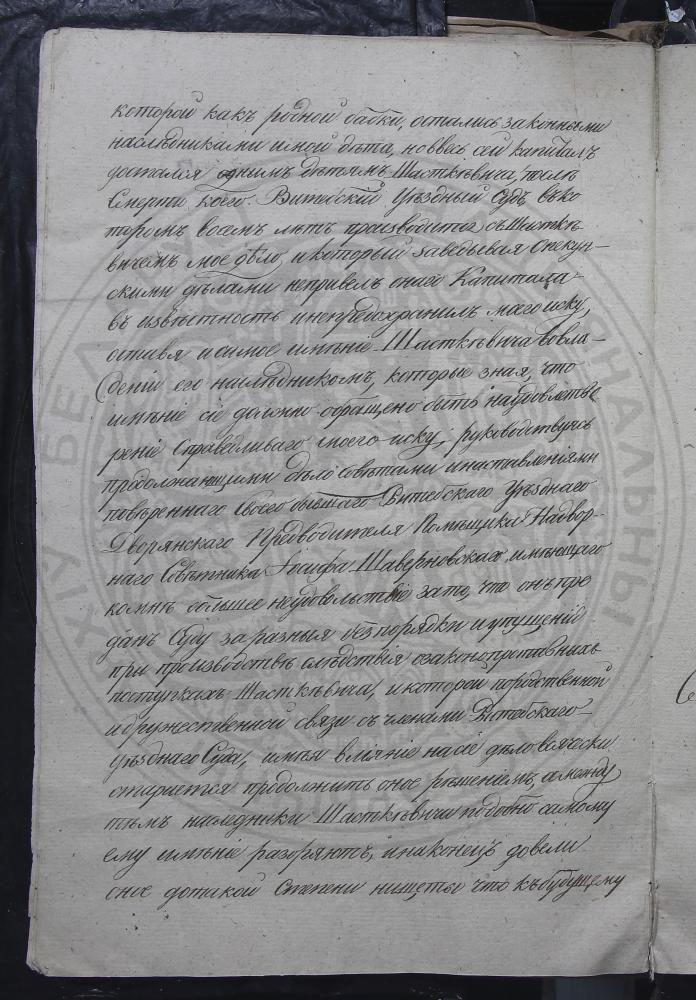 которой какъ родной бабки, остались законными
наслѣдниками и мой дѣти, но ввесь сей капиталъ
достался однимъ дѣтямъ Шасткѣвича, послѣ
Смерти коего. Витебскій Уѣздный Судъ въ ко
торомъ восемъ лѣтъ производится съ Шасткѣ
вичемъ мое дѣло, и который заведывая Опекун-
скими дѣлами непривелъ онаго Капитала
въ извѣстность и непредохранилъ маго иску,
оставя и самое имѣніе Шасткѣвича во вла-
деніи его наслѣдникомъ, которые зная, что
имѣніе сіе должно обращено быть на удовлетво
реніе Справедливаго моего иску; руководствуясь
продолжающими дѣло совѣтами и наставленіями
повѣреннаго своего бывшаго Витебскаго Уѣзднаго
Дворянскаго Предводителя Помѣщика Надвор-
наго Совѣтника Іосифа Шаверновскаго, имѣющаго
комнѣ большее неудовольствіе за то, что онъ пре
данъ Суду за разныя безпорядки и упущеній
при производствѣ слѣдствія о законопротивныхъ
поступкахъ Шасткѣвича, и которой по родственной
и дружественной связи съ членами Витебскаго
уѣзднаго Суда, имѣя вліяніе на сіе дѣло всячески
старается продолжить оное рѣшеніемъ, а между
тѣмъ наследники Шасткѣвича подобно самому
ему имѣніе разоряютъ, и наконецъ довели
оное до такой Степени нищеты что къ будущему